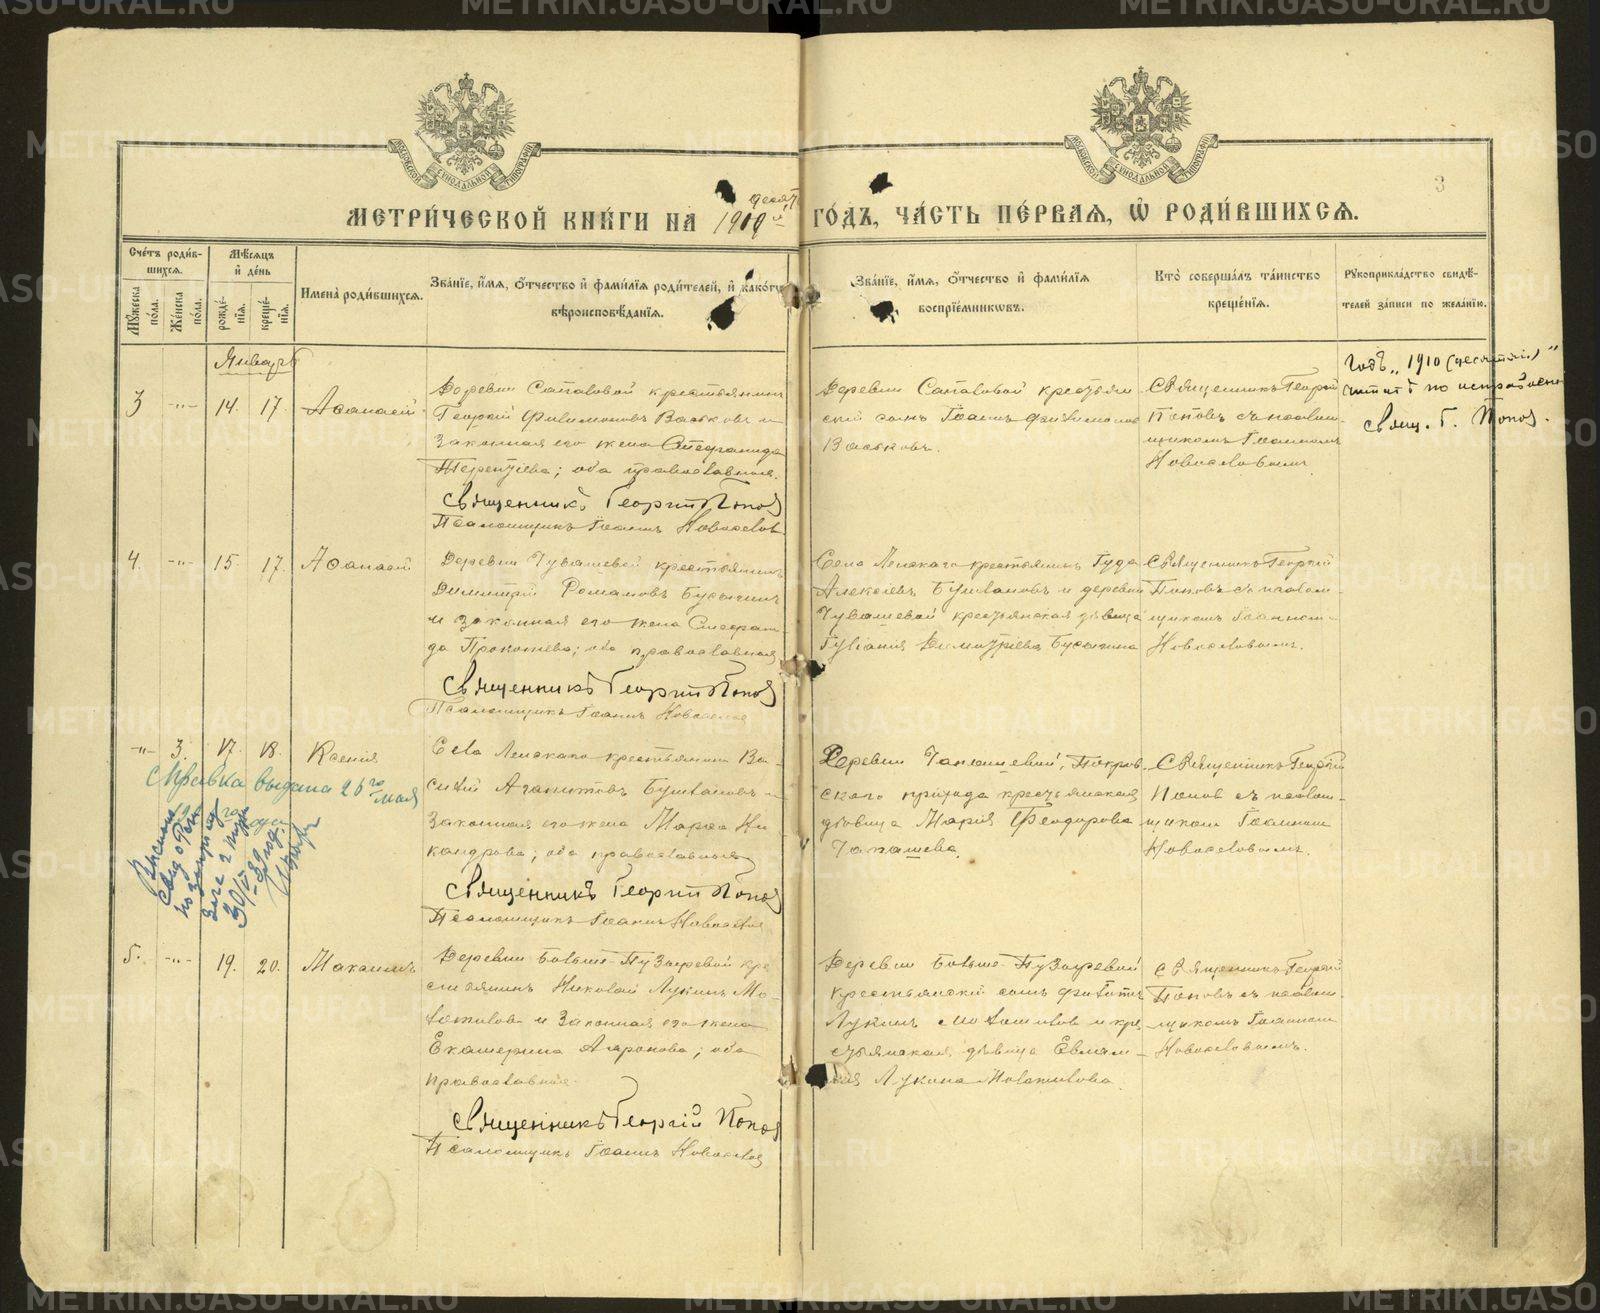 МОСКОВСКОЙ СѴНОДАЛЬНОЙ ТИПОГРАФІИ
МОСКОВСКОЙ СѴНОДАЛЬНОЙ ТИПОГРАФІИ
3
МЕТРИ́ЧЕСКОЙ КНИ́ГИ НА 1910й десят
ГО́ДЪ, ЧА́СТЬ ПЕ́РВАЯ, Ѡ҆ РОДИ́ВШИХСѦ.
Сче́тъ роди́в-
шихсѧ.
Мꙋ́жеска по́ла.
Же́нска по́ла.
Мѣ́сѧцъ и҆ де́нь
рожде́нїѧ.
креще́нїѧ.
Имена̀ роди́вшихсѧ.
Зва́нїе, и҆́мѧ, ѻ҆́тчество и҆ фами́лїѧ роди́телей, и҆ како́гѡ
вѣроисповѣ́данїѧ.
Зва́нїе, и҆́мѧ, ѻ҆́тчество и҆ фами́лїѧ
воспрїе́мникѡвъ.
Кто̀ соверша́лъ та́инство
креще́нїѧ.
Рꙋкоприкла́дство свидѣ́-
телей за́писи по жела́нїю.
Январь
3 -"- 14. 17. Аѳанасій
Деревни Сапаловой крестьянинъ
Георгій Филимоновъ Васьковъ и
законная его жена Стефанида
Терентіева; оба православные.
Священникъ Георгій Попов
Псаломщикъ Іоаннъ Новоселов
Деревни Сапаловой крестьян
скій сынъ Іоаннъ Филимонов
Васьковъ.
Священникъ Георгій
Поповъ съ псалом-
щикомъ Іоанномъ
Новоселовымъ.
Годъ „1910 (десятый)"
читать по исправлен
Свящ. Г. Попов.
4. -"- 15. 17. Аѳанасій
Деревни Чувашевой крестьянинъ
Димитрій Романовъ Бусыгинъ
и законная его жена Стефани
да Прокопіева; оба православные
Священникъ Георгій Попов
Псаломщикъ Іоаннъ Новоселов
Села Ленскаго крестьянинъ Іуда
Алексіевъ Бушлановъ и деревни
Чувашевой крестьянская дѣвица
Іуліанія Димитріева Бусыгина
Священникъ Георгій
Поповъ съ псалом-
щикомъ Іоанном-
Новоселовымъ.
-"- 3. 17. 18. Ксенія
Села Ленскаго крестьянинъ Ва-
силій Агапитовъ Бушлановъ и
законная его жена Марѳа Ни-
кандрова; оба православные
Священникъ Георгій Попов
Псаломщикъ Іоаннъ Новоселов
Деревни Чапышевой, Покров
скаго прихода крестьянская
дѣвица Марія Ѳеодорова
Чапышева.
Священникъ Георгій
Попов съ псалом-
щиком Іоанном
Новоселовымъ.
Справка выдана 26го мая
30/V-39
5. -"- 19. 20. Максимъ
Деревни Больше-Пузыревой кре
стьянинъ Николай Лукинъ Мо-
лотилов и законная его жена
Екатерина Агафонова; оба
православные.
Священникъ Георгій Попов
Псаломщикъ Іоаннъ Новоселов
Деревни Больше-Пузыревой
крестьянскій сынъ Филиппъ
Лукинъ Молотилов и кре
стьянская дѣвица Евлам-
пія Лукина Молотилова
Священникъ Георгій
Поповъ съ псалом-
щикомъ Іоанном
Новоселовымъ.
METRIKI.GASO-URAL.RU